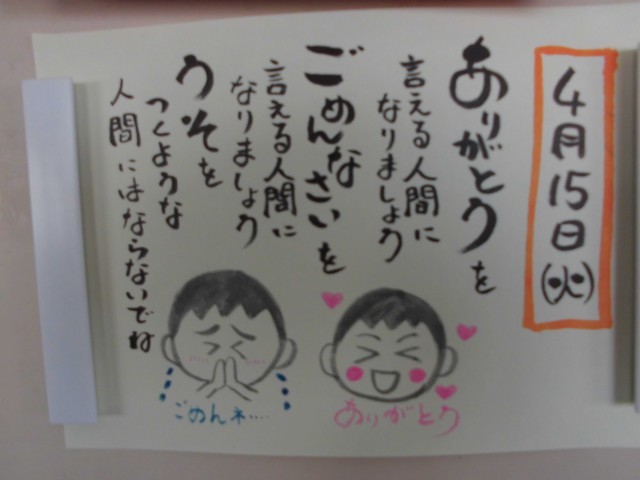 4月15日(火)
ありがとうを
言える人間に
なりましょう
ごめんなさいを
言える人間に
なりましょう
うそを
つくような
人間にはならないでね
ありがとう
ごめんネ....